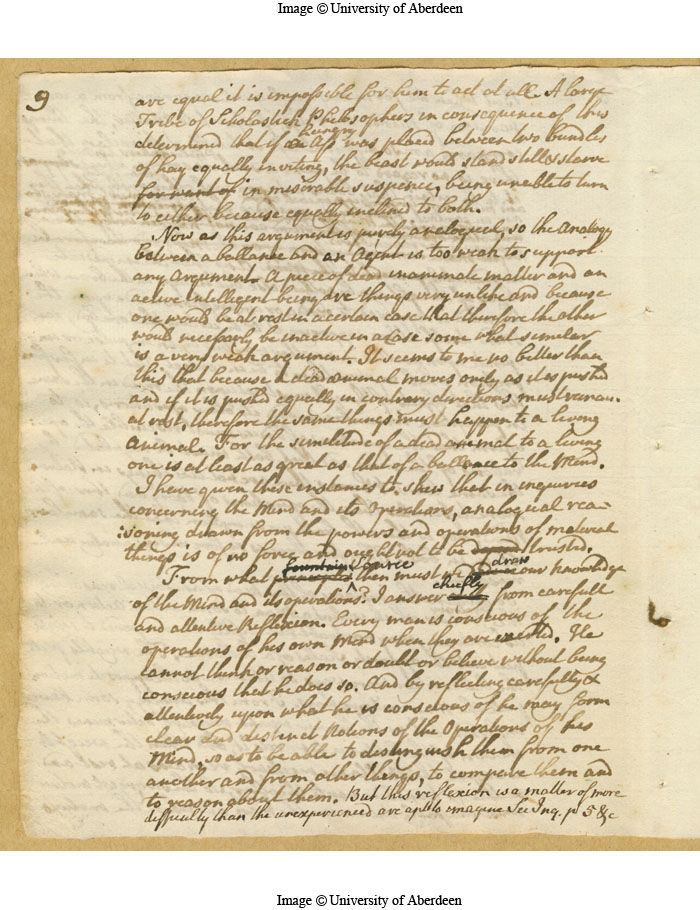 Image © University of Aberdeen
9
are equal it is impossible for him to act at all. A large
Tribe of Scholastick Philosophers in consequence of this
hungry
determined that if an Ass was placed between two bundles
of hay equally inviting, the beast would stand still & starve
for want of in miserable suspence, being unable to turn
to either because equally inclined to both.
Now as this argument is purely analogical, so the Analogy
between a ballance and an Agent is too weak to support
any Argument. A piece of dead inanimate matter and an
active intelligent being are things very unlike and because
one would be at rest in a certain case that therefore the other
would necessarly be inactive in a Case some what similar
is a very weak argument. It seems to me no better than
this that because a dead animal moves only as it is pushed
and if it is pushed equally in contrary directions must remain
at rest, therefore the same things must happen to a living
animal. For the similitude of a dead animal to a living
one is at least as great as that of a ballance to the Mind.
I have given these instances to shew that in inquiries
concerning the Mind and its Operations, analogical rea-
:soning drawn from the powers and operations of material
things is of no force and ought not to be trusted.
fountain Source draw
From what principles then must we our knowledge
chiefly
of the Mind and its operations? I answer from carefull
and attentive Reflexion. Every man is conscious of the
operations of his own Mind when they are exerted. He
cannot think or reason or doubt or believe without being
conscious that he does so. And by reflecting carefully &
attentively upon what he is conscious of he may form
clear and distinct Notions of the Operations of his
Mind, so as to be able to destinguish them from one
another and from other things, to compare them and
to reason about them. But this reflexion is a matter of more
difficulty than the unexperienced are apt to imagine See Inq. p 5 &c
Image © University of Aberdeen